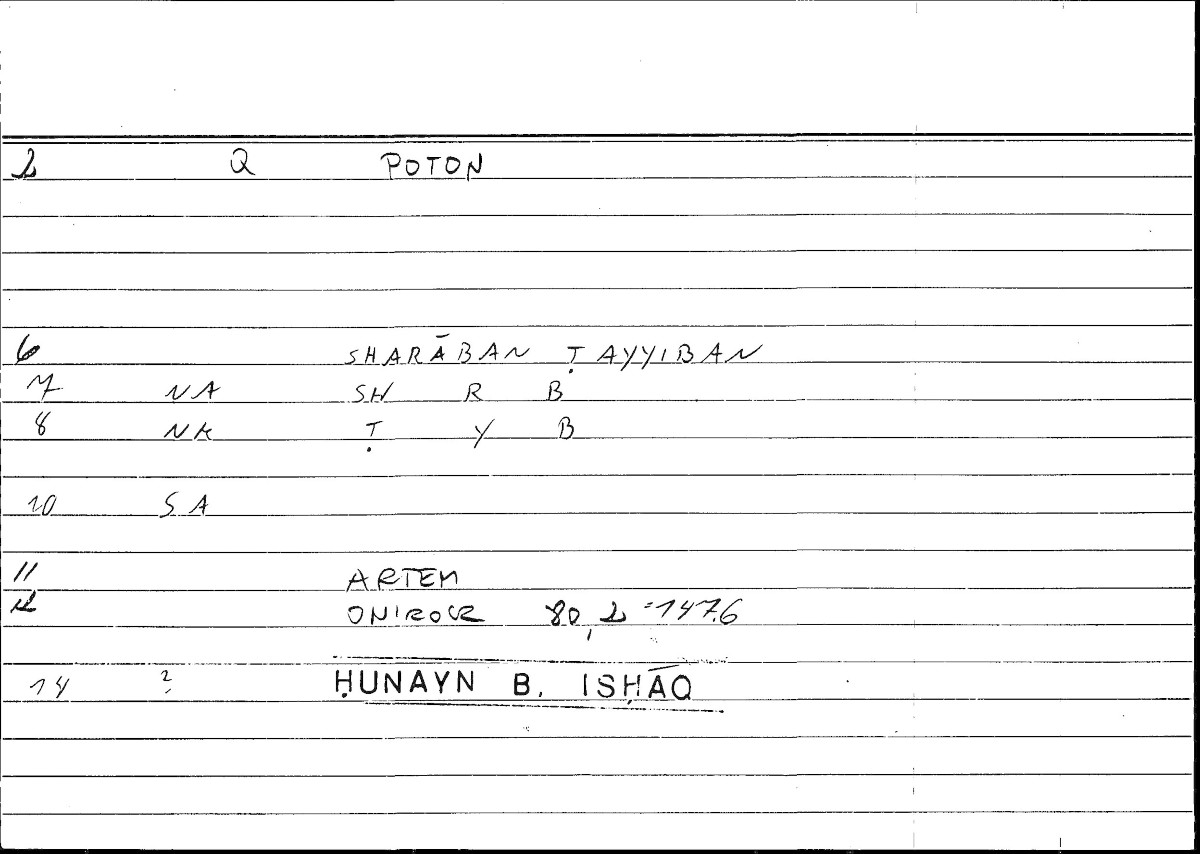 2 Q POTON
6 SHARĀBAN ṬAYYIBAN
7 NA SH R B
8 NK Ṭ Y B
10 SA
11 ARTEM
12 ONIROCR 80,2 = 147.6
14 ? ḤUNAYN B. ISḤĀQ